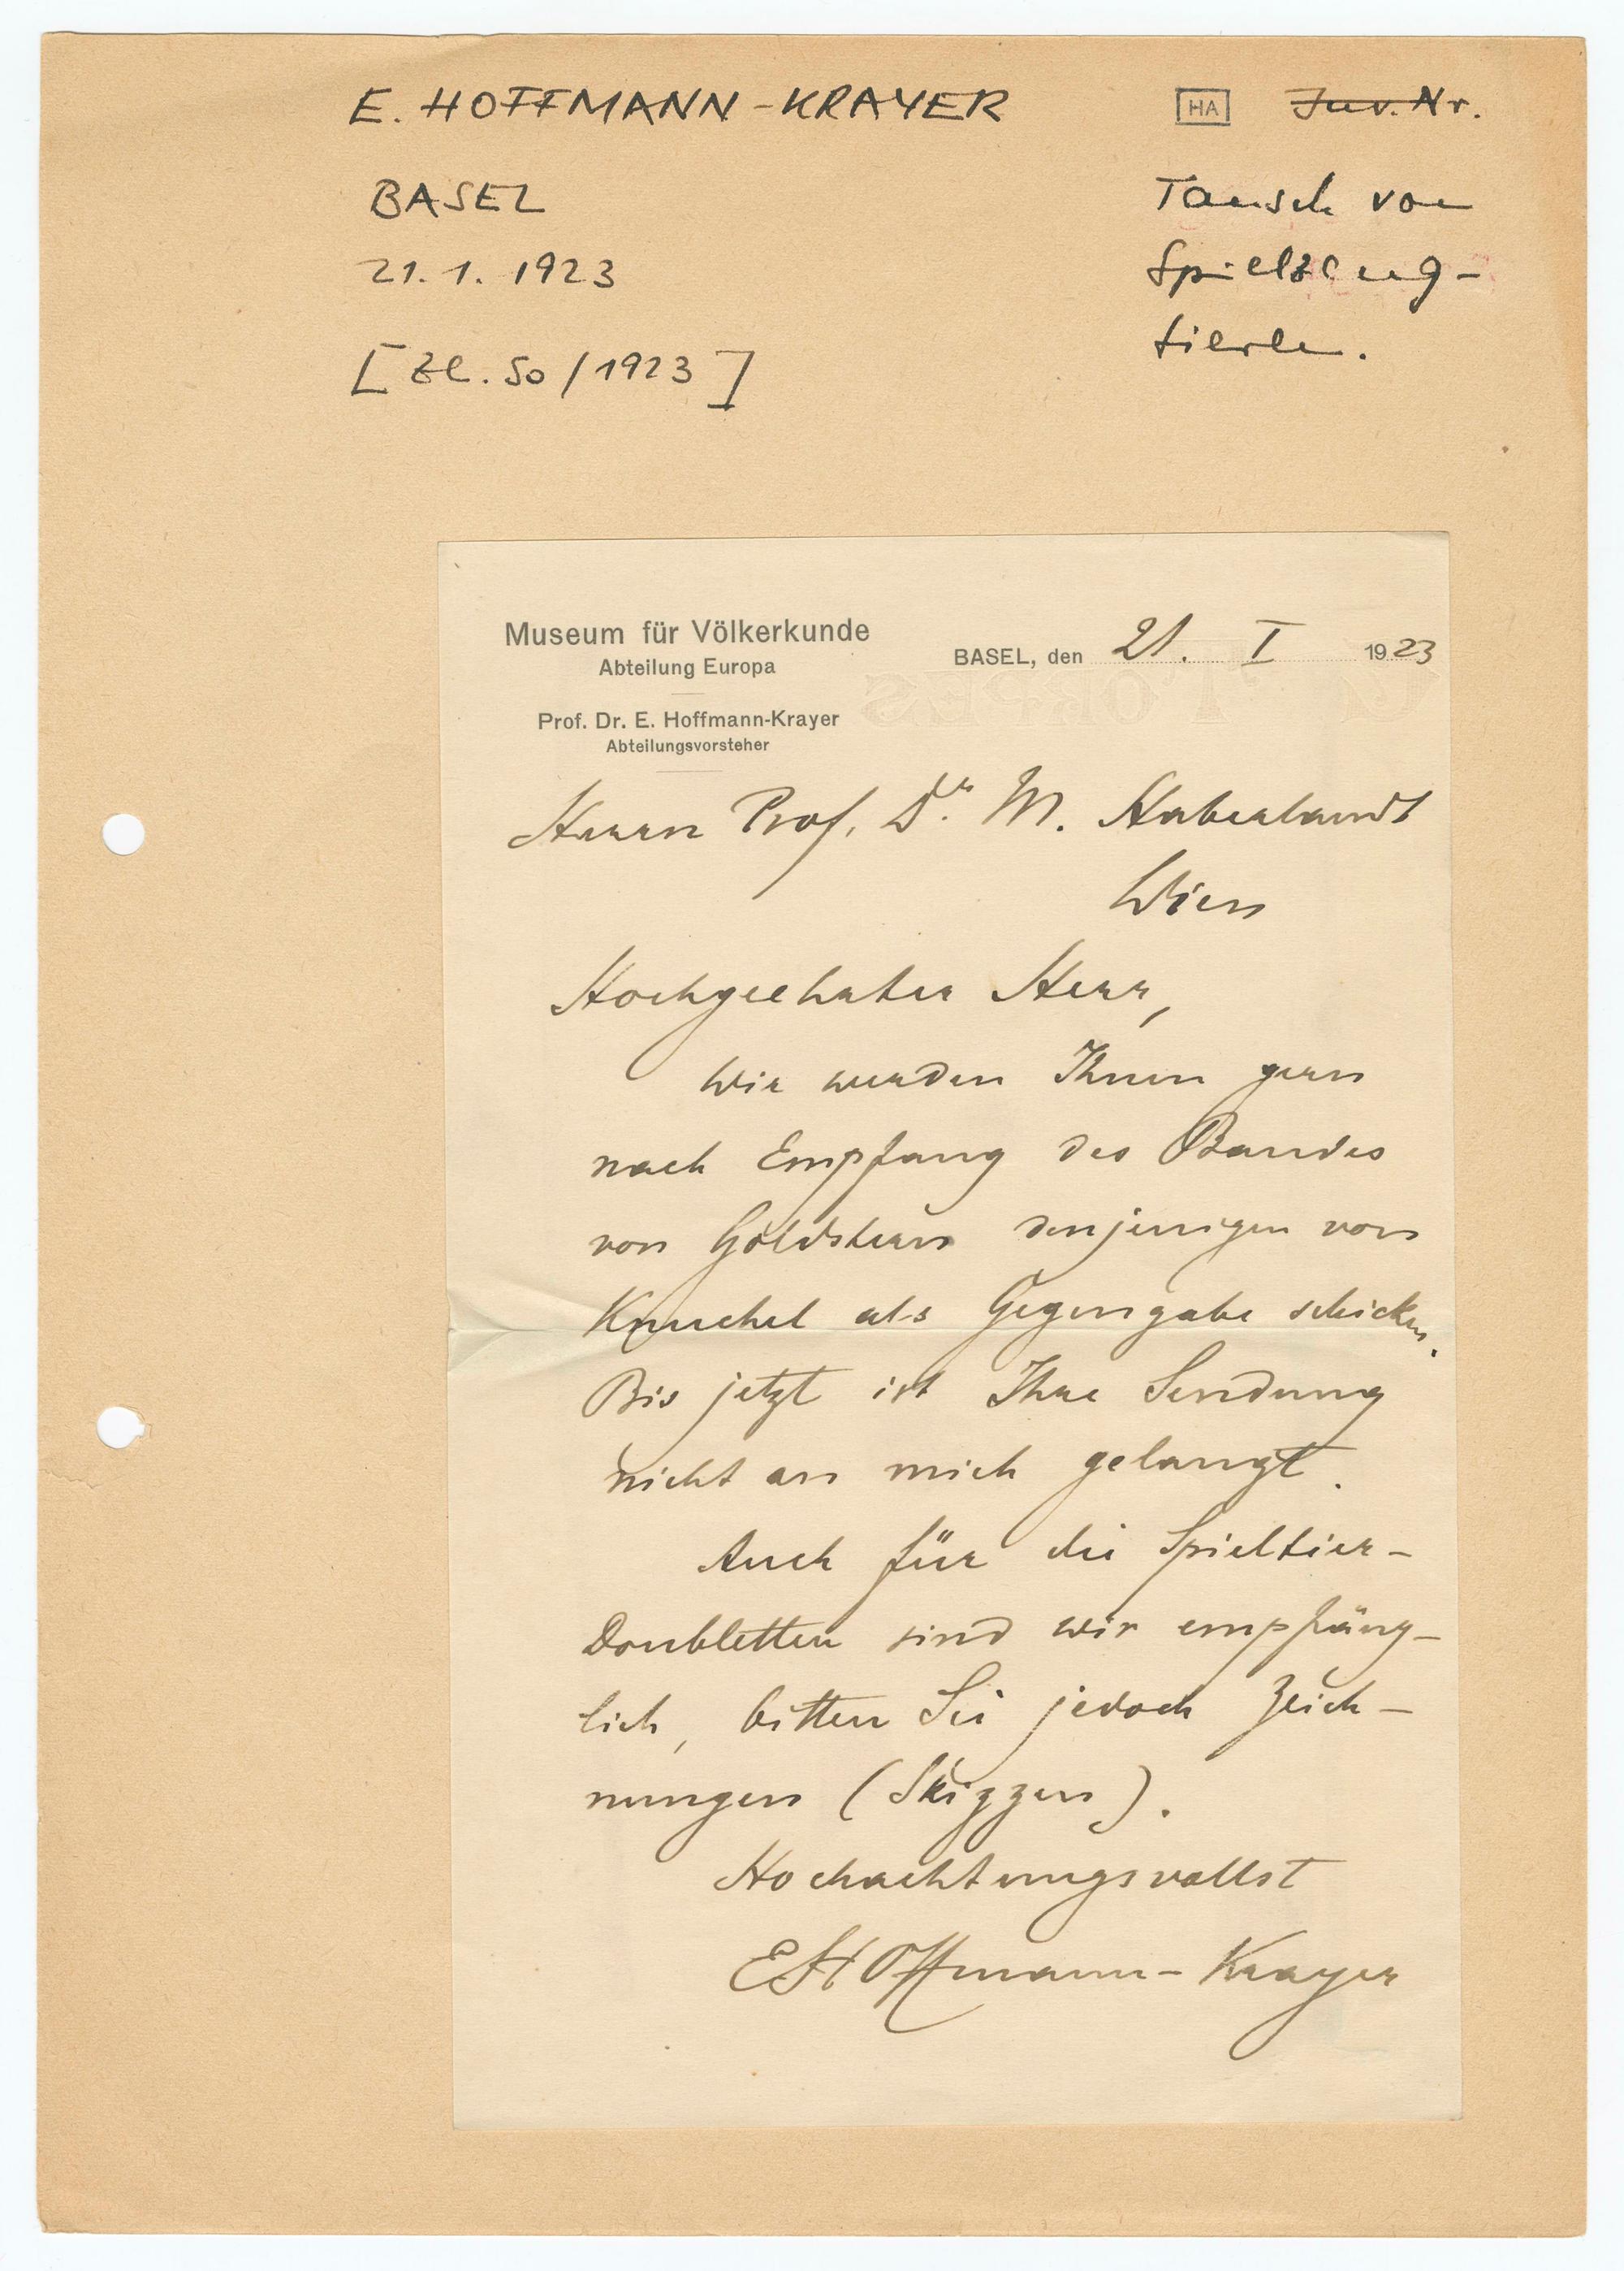 E. HOFFMANN-KRAYER
HA Inv. Nr.
BASEL
21. 1. 1923
[Zl. 50/1923]
Tausch von
Spielzeug-
tieren.
Museum für Völkerkunde
Abteilung Europa
Prof. Dr. E. Hoffmann-Krayer
Abteilungsvorsteher
BASEL, den 21. I 1923
Herrn Prof. Dr. M. Haberlandt
Wien
Hochgeehrter Herr,
Wir werden Ihnen gern
nach Empfang des Bandes
von Goldstern denjenigen von
Knuchel als Gegengabe schicken.
Bis jetzt ist Ihre Sendung
nicht an mich gelangt.
Auch für die Spieltier-
Doubletten sind wir empfäng-
lich, bitten Sie jedoch Zeich-
nungen (Skizzen).
Hochachtungsvollst
EHoffmann-Krayer